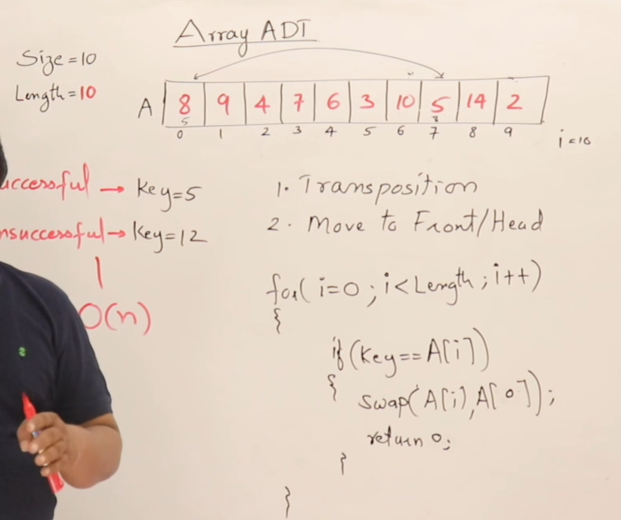 Array ADT
Size = 10
Length = 10
A 8 9 4 7 6 3 10 5 14 2
5 8
0 1 2 3 4 5 6 7 8 9
i=10
uccessful → Key=5
nsuccessful → Key=12
O(n)
1. Transposition
2. Move to Front/Head
for( i=0 ; i<Length ; i++)
{
if (Key==A[i])
{ swap(A[i],A[0]);
return 0;
}
}